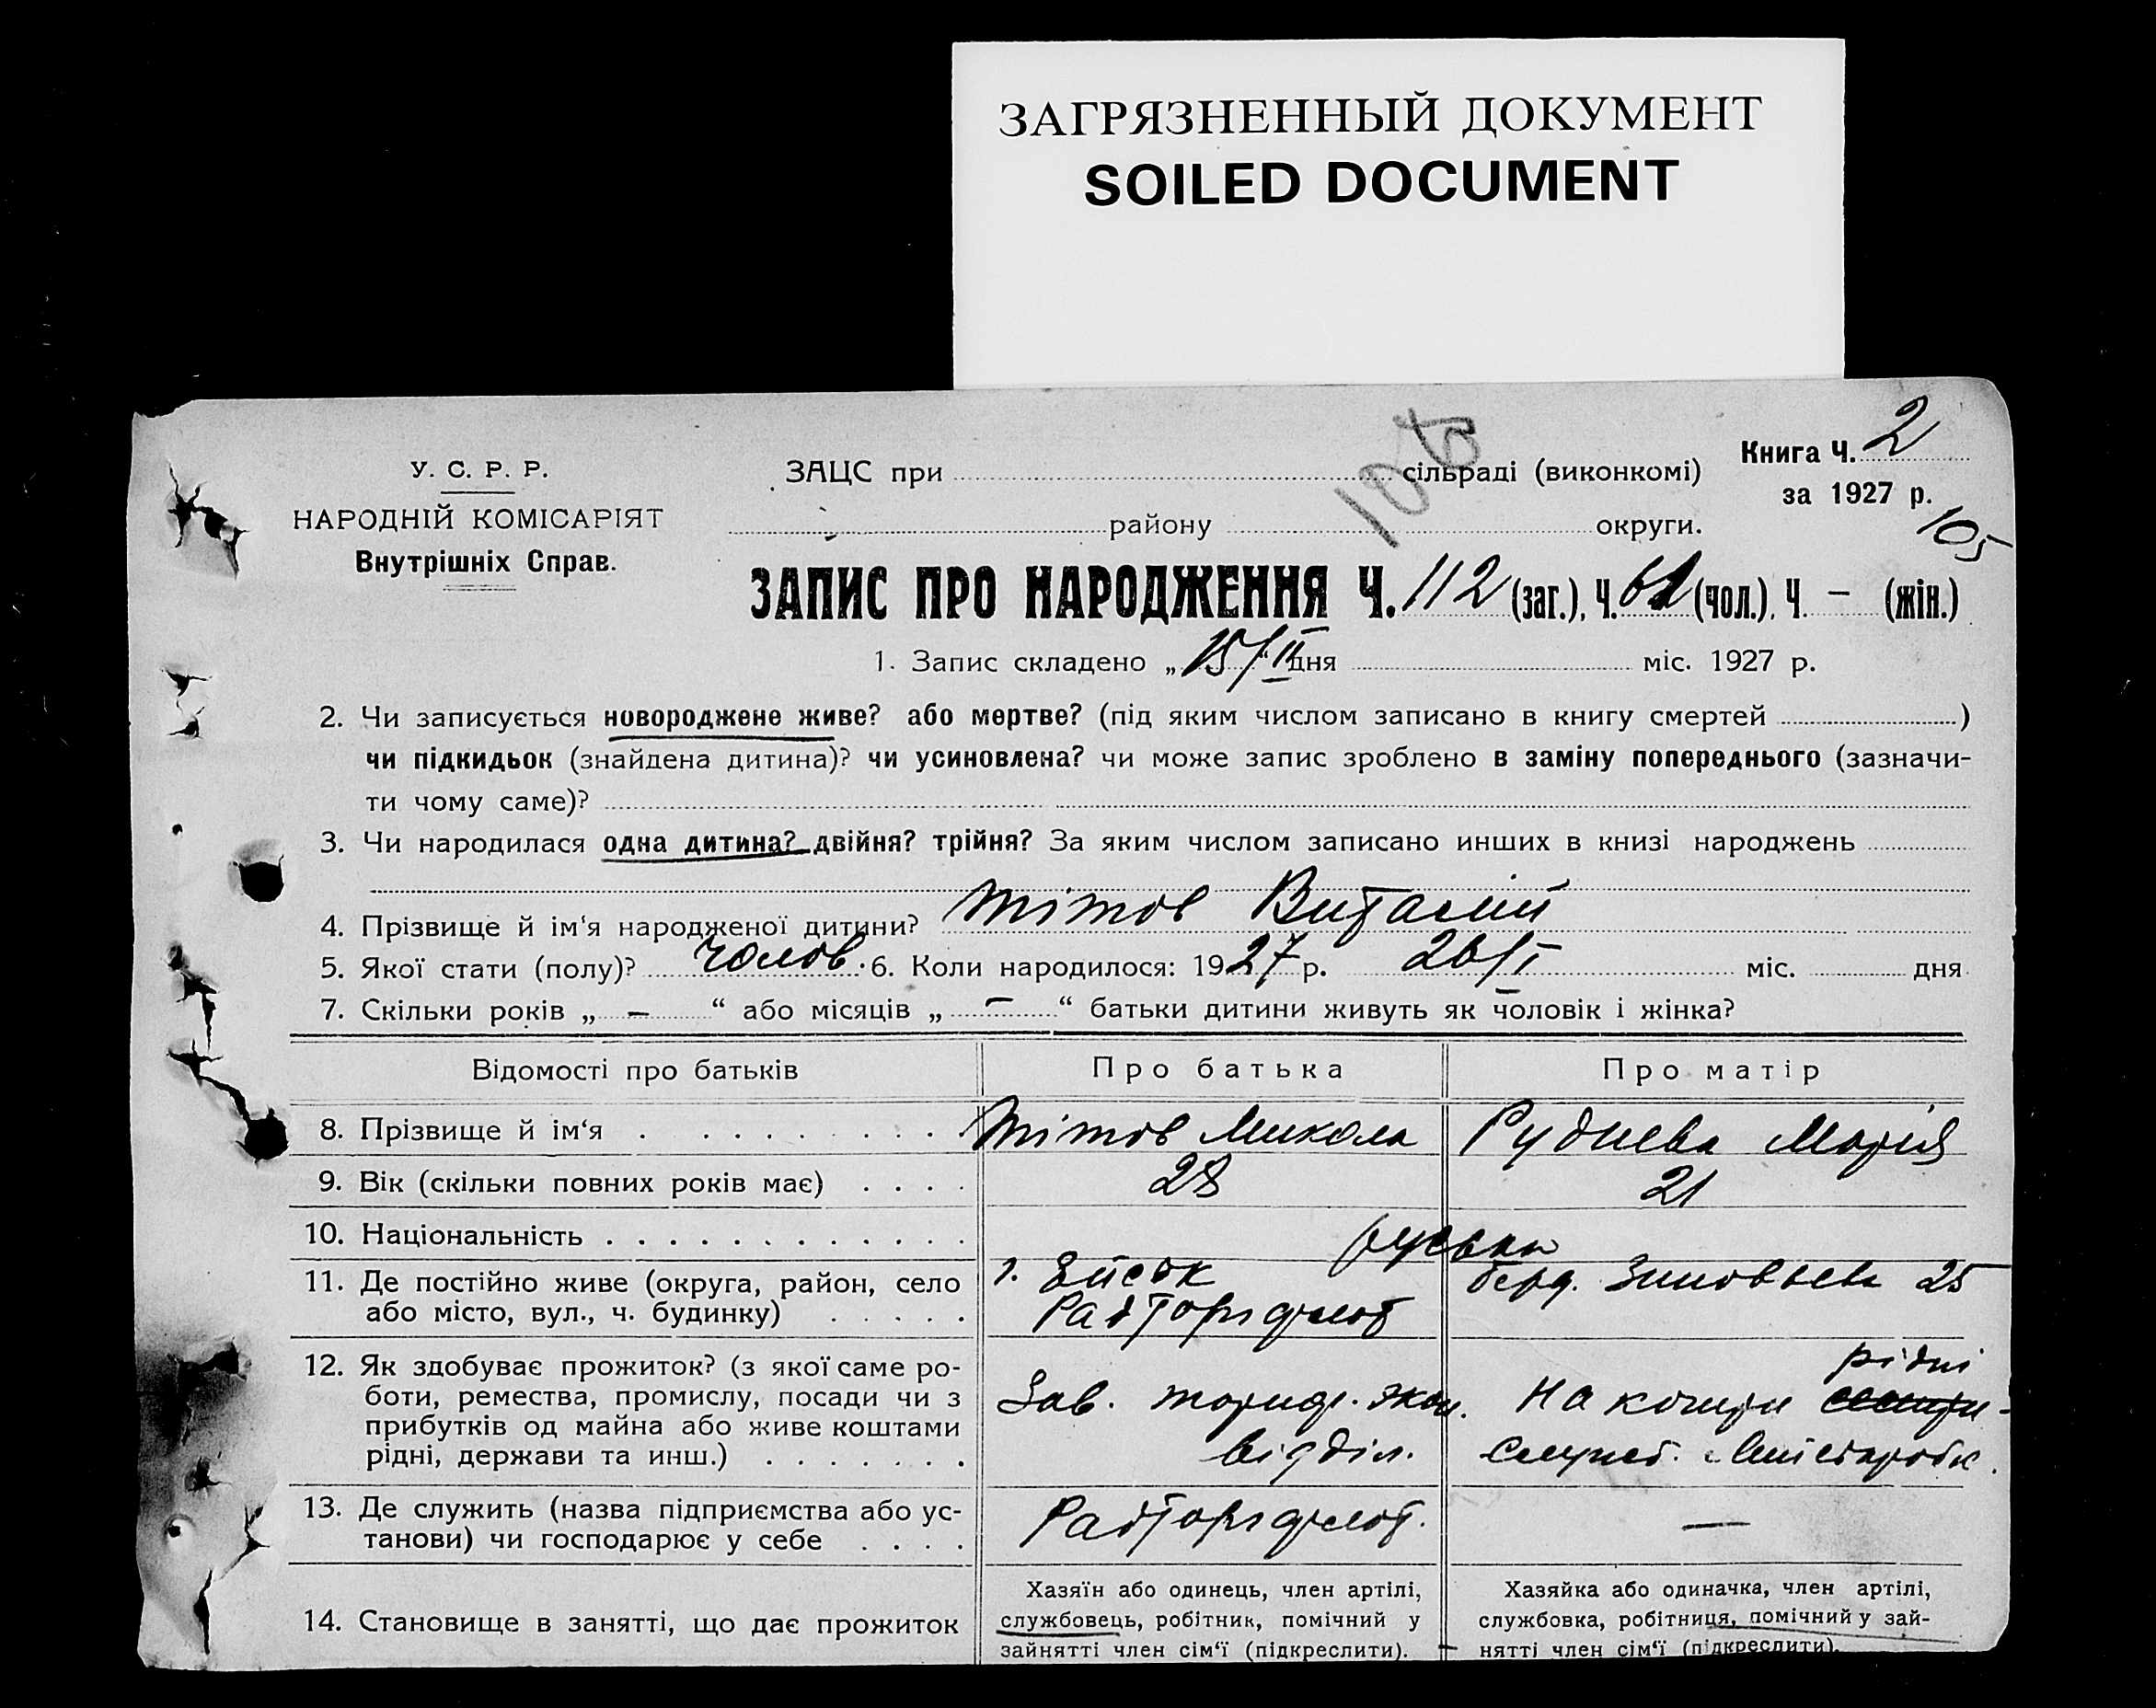 ЗАГРЯЗНЕННЫЙ ДОКУМЕНТ
SOILED DOCUMENT
У. С. Р. Р.
НАРОДНІЙ КОМІСАРІЯТ
Внутрішніх Справ.
ЗАЦС при сільраді (виконкомі)
Книга Ч. 2
за 1927 р.
району округи.
105
ЗАПИС ПРО НАРОДЖЕННЯ Ч. 112 (заг.), Ч. 61 (чол.), Ч. – (жін.)
1. Запис складено „ 15/II “ дня міс. 1927 р.
2. Чи записується новороджене живе? або мертве? (під яким числом записано в книгу смертей )
чи підкидьок (знайдена дитина)? чи усиновлена? чи може запис зроблено в заміну попереднього (зазначи-
ти чому саме)?
3. Чи народилася одна дитина? двійня? трійня? За яким числом записано инших в книзі народжень
4. Прізвище й ім‘я народженої дитини? Тітов Віталій
5. Якої стати (полу)? чолов. 6. Коли народилося: 1927 р. 26/I міс. дня
7. Скільки років „ – “ або місяців „ – “ батьки дитини живуть як чоловік і жінка?
Відомості про батьків Про батька Про матір
8. Прізвище й ім‘я Тітов Микола Руднева Марія
9. Вік (скільки повних років має) 28 21
10. Національність руськи
11. Де постійно живе (округа, район, село г. Ейськ берд. Зиновьева 25
або місто, вул., ч. будинку) Радторгфлот
12. Як здобуває прожиток? (з якої саме ро- рідні
боти, ремества, промислу, посади чи з Зав. экон. На кошти
прибутків од майна або живе коштами
рідні, держави та инш.) відділ.
13. Де служить (назва підприємства або ус- Радторгфлот. —
танови) чи господарює у себе
14. Становище в занятті, що дає прожиток
Хазяїн або одинець, член артілі,
службовець, робітник, помічний у
зайнятті член сім‘ї (підкреслити).
Хазяйка або одиначка, член артілі,
службовка, робітниця, помічний у зай-
нятті член сім‘ї (підкреслити).